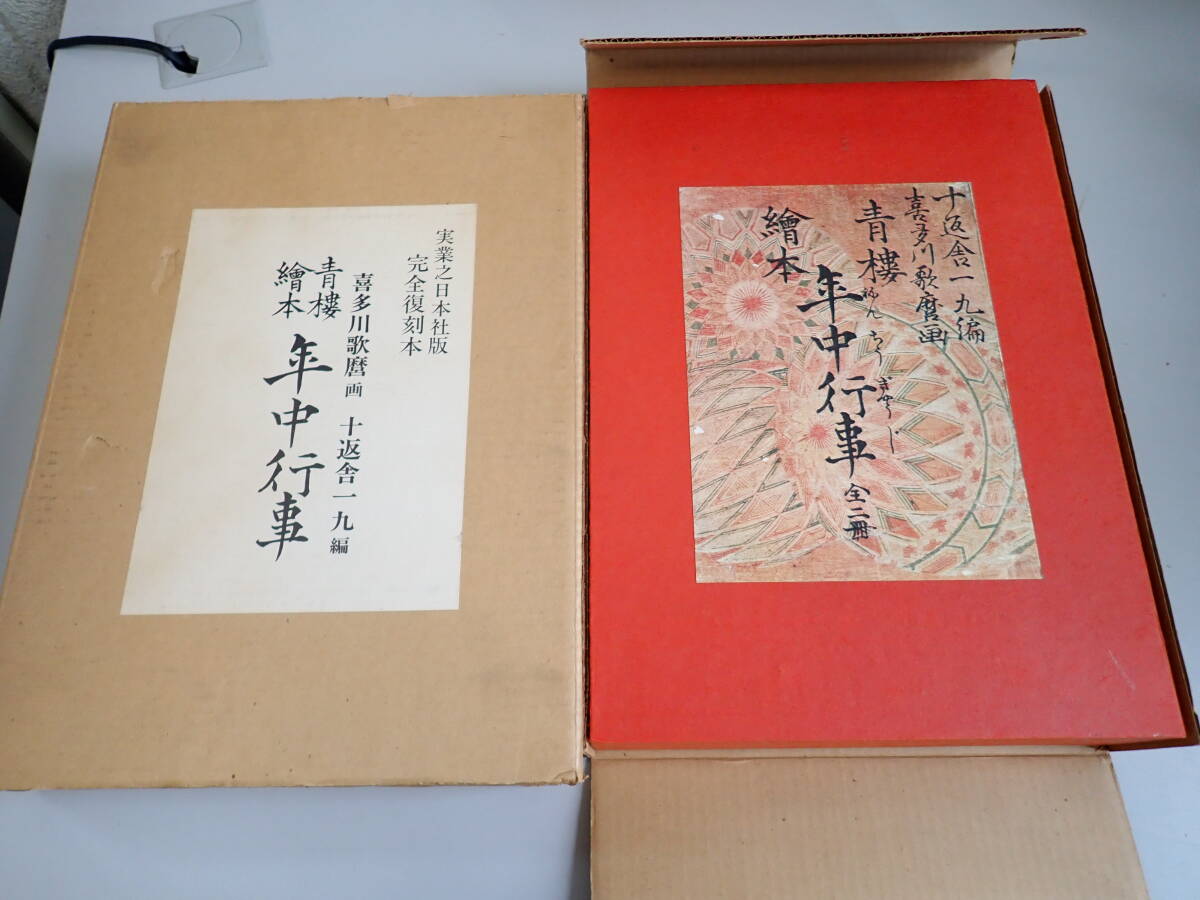 実業之日本社版
完全復刻本
喜多川歌麿画 十返舎一九編
青樓
繪本
年中行事
十返舎一九編
喜多川歌麿画
青樓
繪本
年中行事 全二冊
ねん
ぢう
ぎやうじ